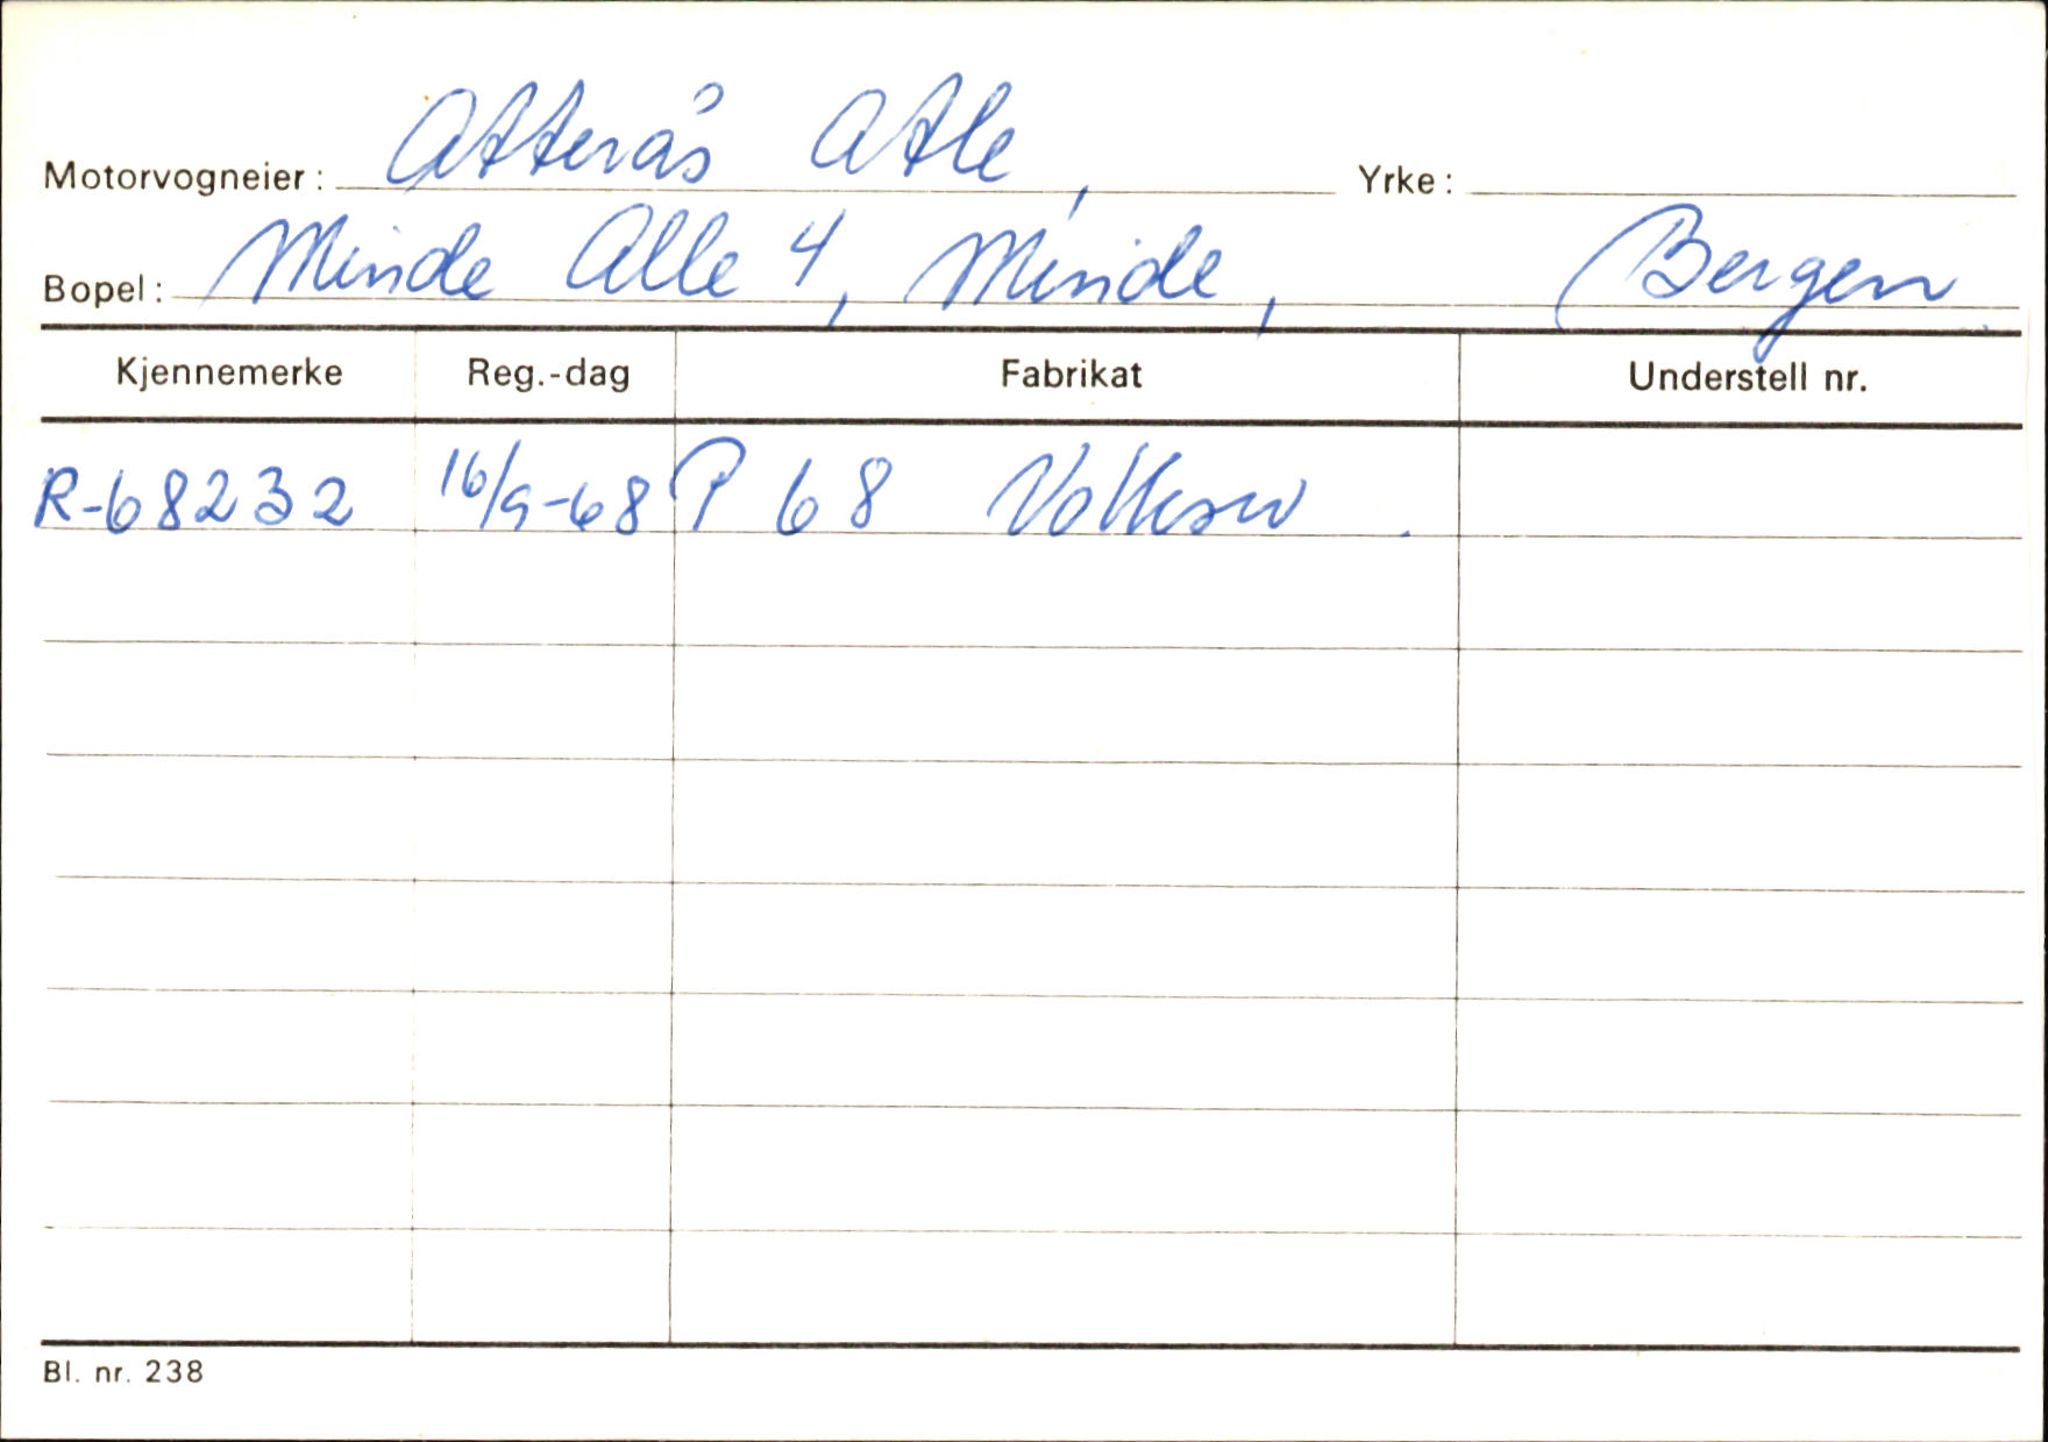 Motorvogneier: Atterås Atle, Yrke:
Bopel: Minde Alle 4, Minde, Bergen
Kjennemerke Reg.-dag Fabrikat Understell nr.
R-68232 16/9-68 P 68 Volksw.
Bl. nr. 238